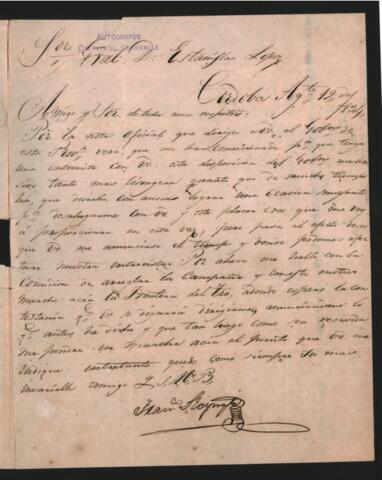 AUTÓGRAFOS
Sor
Gral. Dn Estanislao Lopez
Cordoba Agto 12 de
Amigo y Sor de todo mi respeto:
Por la nota oficial que dirige a Vd. el Gobno de
esta Prova verá que me ha comisionado pa que tenga
una entrevista con Vd: esta disposicion del Gobno me ha
sido tanto mas lisongera quanto que de mucho tiempo
ha, que estaba con ansias lograr una ocacion
pa desahogarme con Vd y este placer creo que me voy
a proporcionar en esta vez; para el efecto
que Vd me anuncie el tiempo y donde podremos efec
tuar nuestra entrevista. Por ahora me hallo con la
Comision de arreglar la Campaña y con este motivo
marcho acia la Frontera del Tio, donde espero la con
testacion qe Vd se dignará dirigirme, anunciandome lo
qe antes he dicho y que tan luego como sea recivida
me pondré en marcha acia el punto que Vd me
indique entretanto quedo como siempre su mas
invariable amigo Q. S. M. B.
Franco Reynafé